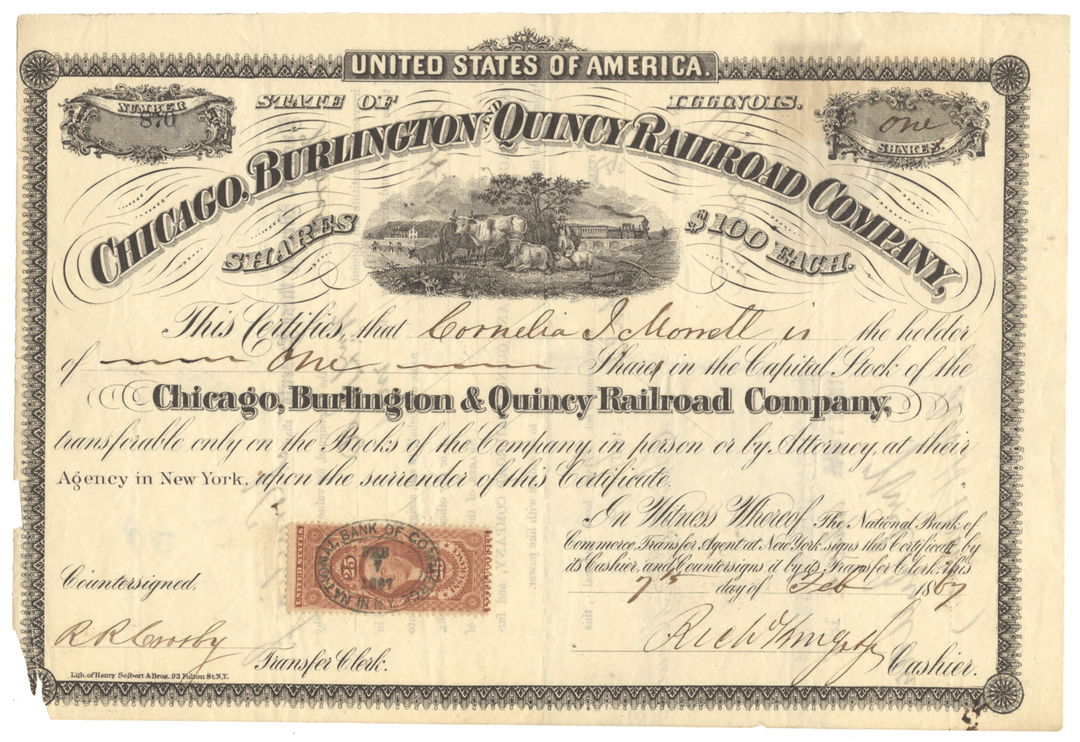 UNITED STATES OF AMERICA.
NUMBER
870
STATE OF ILLINOIS.
One
SHARES.
CHICAGO, BURLINGTON AND QUINCY RAILROAD COMPANY,
SHARES $100 EACH.
This Certifies, that Cornelia J Morrell is the holder
of One Shares in the Capital Stock of the
Chicago, Burlington & Quincy Railroad Company,
transferable only on the Books of the Company, in person or by Attorney, at their
Agency in New York, upon the surrender of this Certificate.
In Witness Whereof The National Bank of
Commerce, Transfer Agent at New York signs this Certificate by
its Cashier, and Countersigns it by its Transfer Clerk, this
7th day of Feb 1867
NATIONAL BANK OF COMMERCE
FEB
7
1867
25
Countersigned,
R R Crosby
Transfer Clerk.
Cashier.
Lith. of Henry Seibert & Bros. 93 Fulton St. N.Y.